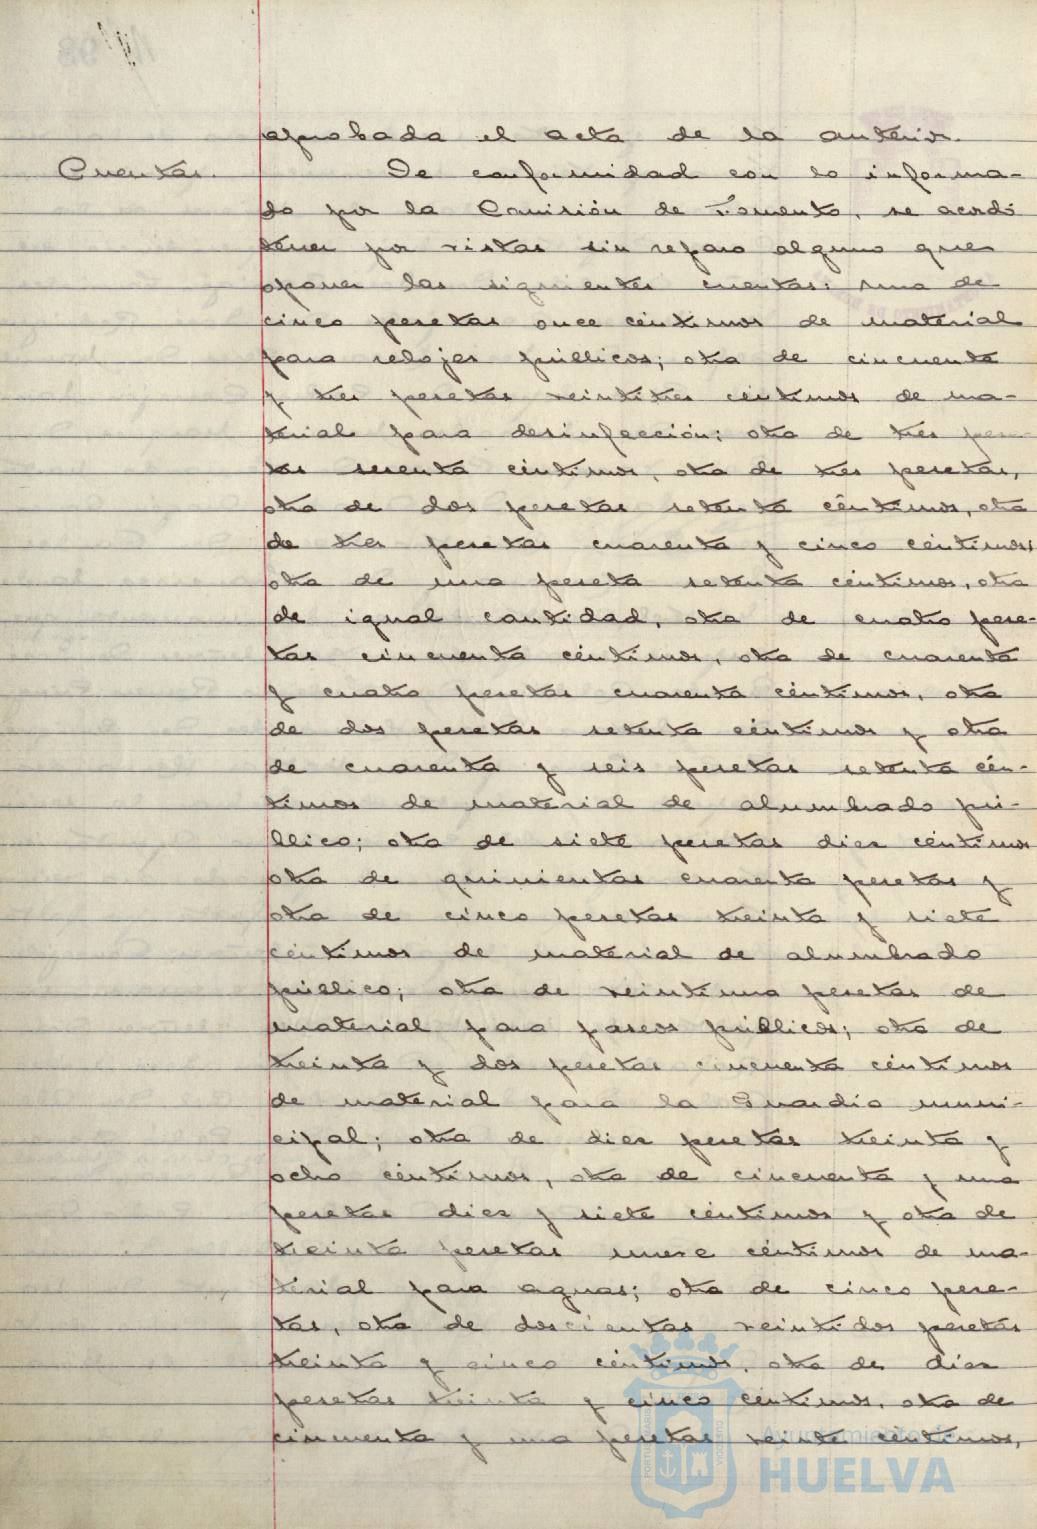 aprobada el acta de la anterior.
Cuentas. De conformidad con lo informa-
do por la Comisión de Fomento, se acordó
tener por vistas sin reparo alguno que
oponer las siguientes cuentas: una de
cinco pesetas once céntimos de material
para relojes públicos; otra de cincuenta
y tres pesetas veintitres céntimos de ma-
terial para desinfección; otra de tres pese-
tas sesenta céntimos, otra de tres pesetas,
otra de dos pesetas setenta céntimos, otra
de tres pesetas cuarenta y cinco céntimos
otra de una peseta setenta céntimos, otra
de igual cantidad, otra de cuatro pese-
tas cincuenta céntimos, otra de cuarenta
y cuatro pesetas cuarenta céntimos, otra
de dos pesetas setenta céntimos y otra
de cuarenta y seis pesetas setenta cén-
timos de material de alumbrado pú-
blico; otra de siete pesetas diez céntimos
otra de quinientas cuarenta pesetas y
otra de cinco pesetas treinta y siete
céntimos de material de alumbrado
público; otra de veintiuna pesetas de
material para paseos públicos; otra de
treinta y dos pesetas cincuenta céntimos
de material para la Guardia muni-
cipal; otra de diez pesetas treinta y
ocho céntimos, otra de cincuenta y una
pesetas diez y siete céntimos y otra de
treinta pesetas nueve céntimos de ma-
terial para aguas; otra de cinco pese-
tas, otra de doscientas veintidos pesetas
treinta y cinco céntimos, otra de diez
pesetas treinta y cinco céntimos, otra de
cincuenta y una pesetas veinte céntimos,
Ayuntamiento de
HUELVA